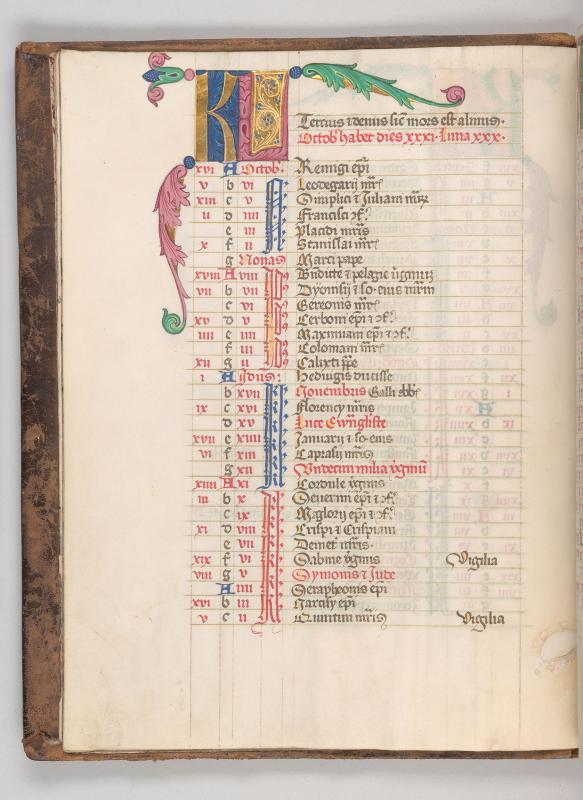 KL
Tercius et denus sicut mors est alienus.
Octob' habet dies xxxi. Luna xxx.
xvi A Octob. Remigii epi
v b vi Leodegarii mr
xiii c v
ii d iiii Francisci cf.
e iii Placidi mris
x f ii Stanislai mr
g Nonas Marci pape
xviii A viii
vii b vii Dyonisii et so. eius mrm
c vi Gereonis mr
xv d v Cerboni epi et cf.
iiii e iiii epi et cf.
f iii Colomani mr
xii g ii Calixti ppe
i A Idus. Hedwigis ducisse
b xvii Novembris Galli abb
ix c xvi Florencii mris
d xv Luce Ewngliste
xvii e xiiii Januarii et so. eius
vi f xiii Caprasii mris
g xii Undecim milia vginum
xiiii A xi Cordule vginis
iii b x Severini epi et cf.
c ix Maglorii epi et cf.
xi d viii Crispi et Crispiani
e vii Demetrii mris.
xix f vi Sabine vginis Vigilia
viii g v Symonis et Jude
A iiii epi
xvi b iii Narcisi epi
v c ii Quintini mris Vigilia